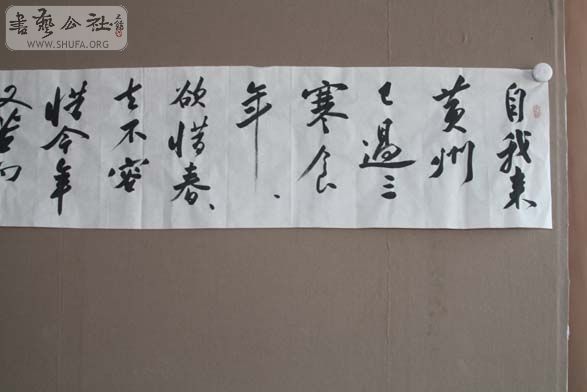 自我来
黄州
已過三
寒食
年、
欲惜春、
去不容
惜今年
又苦雨
書藝公社
WWW.SHUFA.ORG